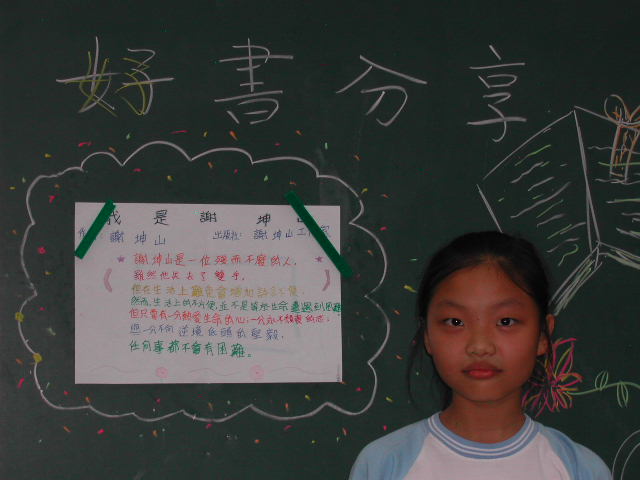 好書分享
我是謝坤山
謝坤山 出版社: 謝坤山工
★謝坤山是一位殘而不廢的人,★
雖然他失去了雙手,
但在生活上難免會增加許多不便,
然而,生活上的不方便,並不是皆於生命遭遇到困難
但只要有一分熱愛生命的心;一分永不頹喪的志;
與一分不向逆境低頭的堅毅,
任何事都不會有困難。